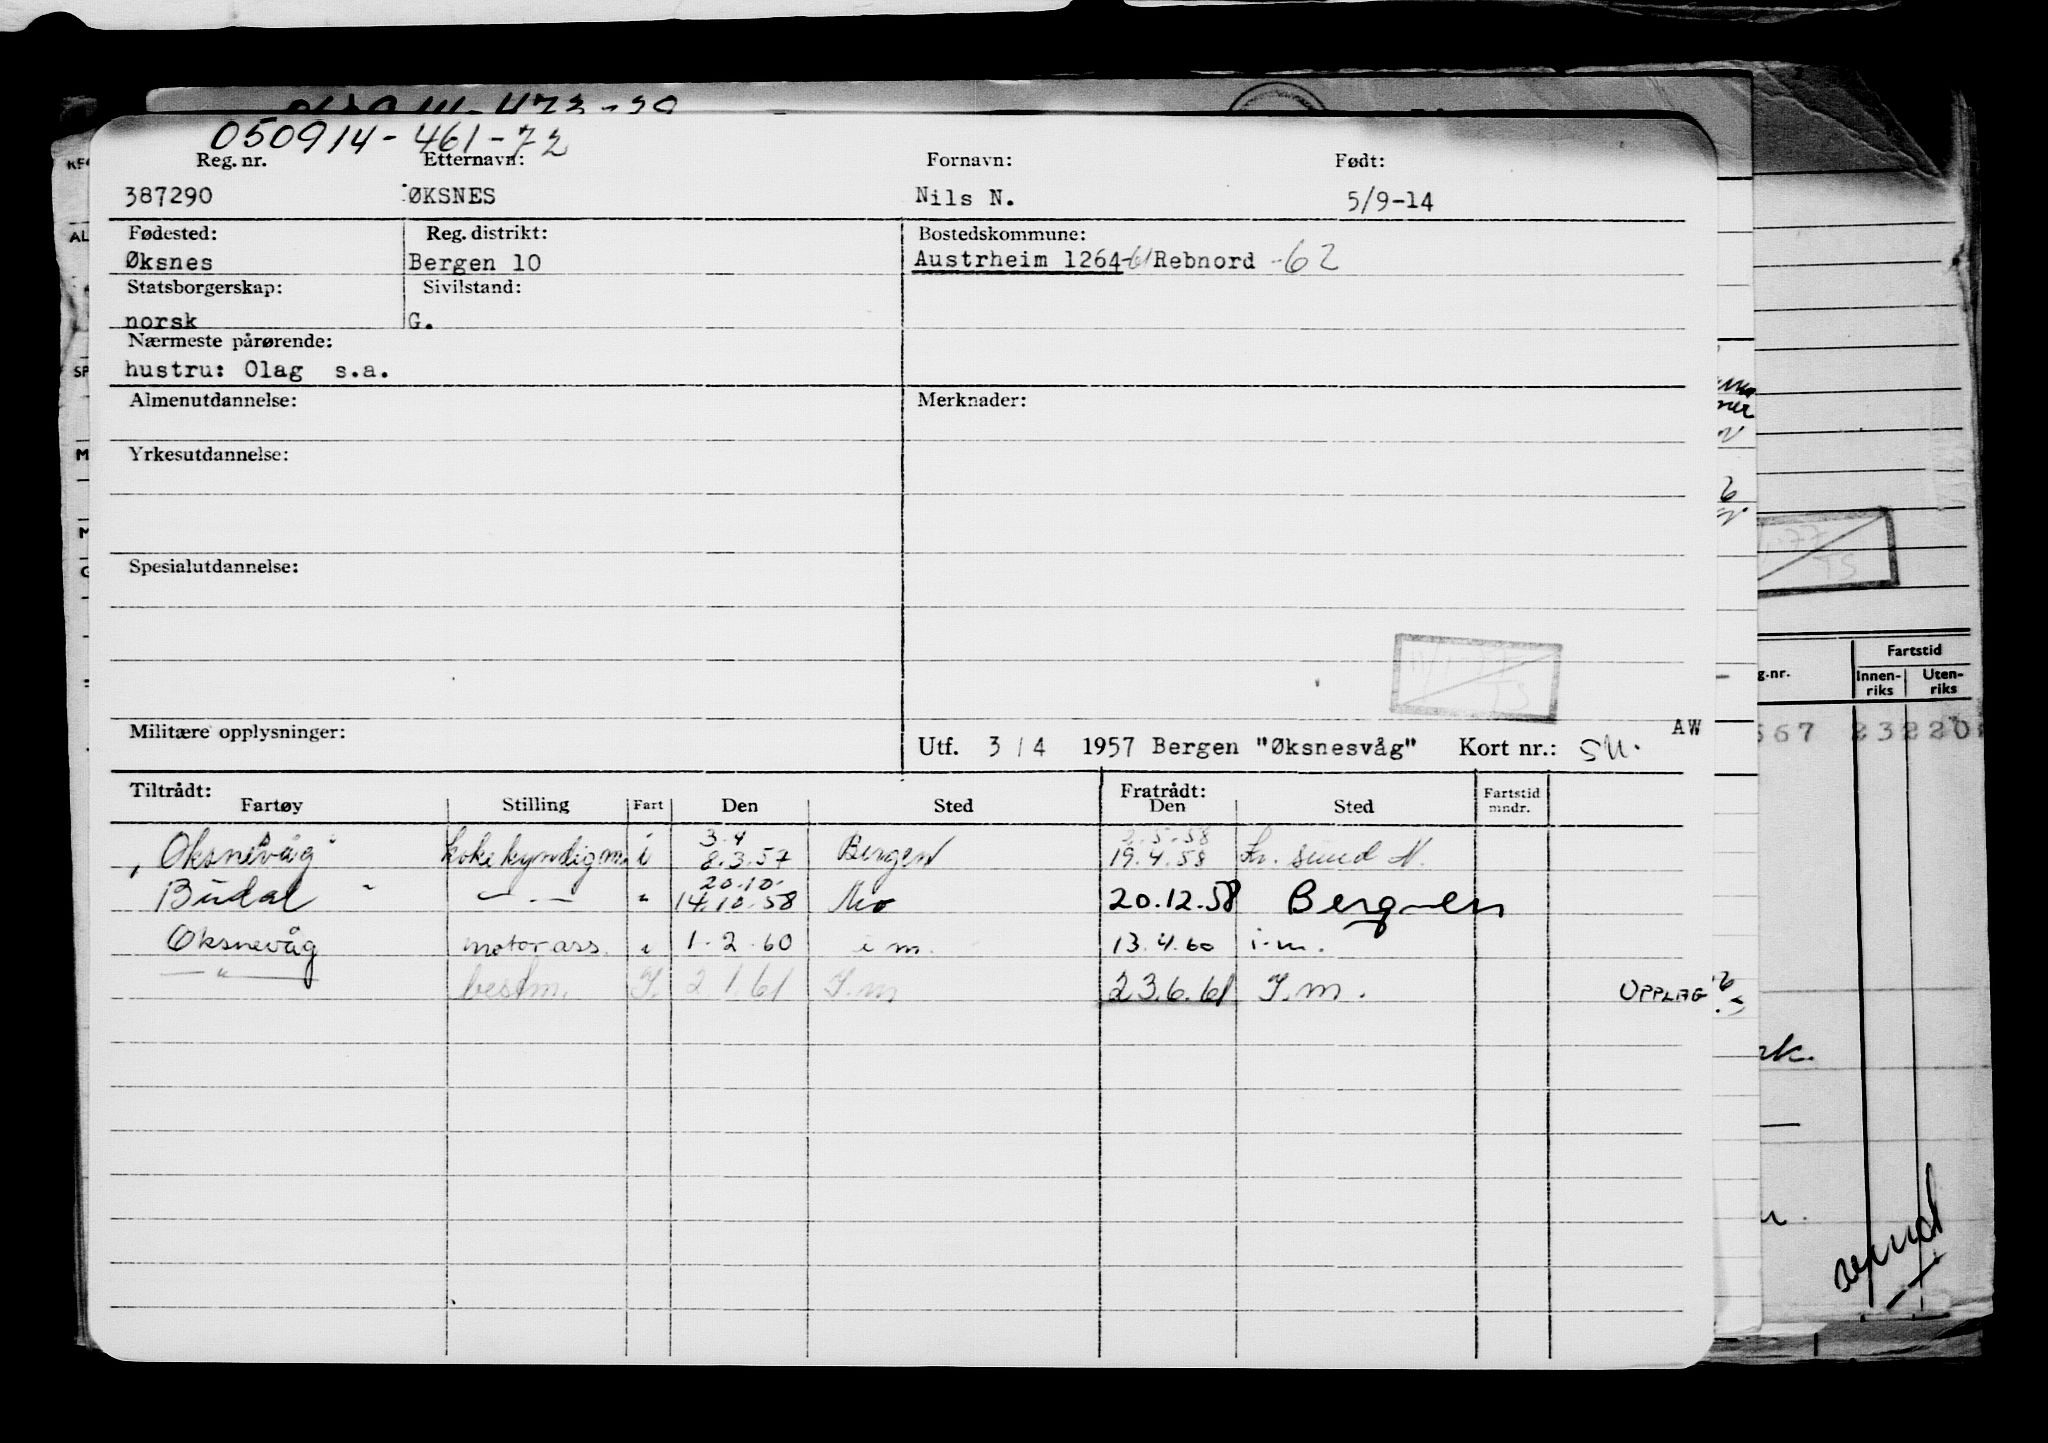 050914-461-72
Reg. nr. Etternavn: Fornavn: Født:
387290 ØKSNES Nils N. 5/9-14
Fødested: Reg. distrikt: Bostedskommune:
Øksnes Bergen 10 Austrheim 1264-61 Rebnord -62
Statsborgerskap: Sivilstand:
norsk G.
Nærmeste pårørende:
hustru: Olag s.a.
Almenutdannelse: Merknader:
Yrkesutdannelse:
Spesialutdannelse:
Militære opplysninger:
AW
Utf. 3/4 1957 Bergen "Øksnesvåg" Kort nr.: SM.
Tiltrådt: Fratrådt:
Fartøy Stilling Fart Den Sted Den Sted Fartstid mndr.
3.4 2.5.58
"Øksnevåg" kokekyndigm. i 8.3.57 Bergen 19.4.58 Kr. sund N.
20.10.
Budal " — . — " 14.10.58 Mo 20.12.58 Bergen
Øksnevåg motor ass. i 1.2.60 i m. 13.4.60 i.m.
— " — bestm. I. 2.1.61 I.m 23.6.61 I.m. OPPLAG
Fartstid
g.nr. Innen-riks Uten-riks
567 23220